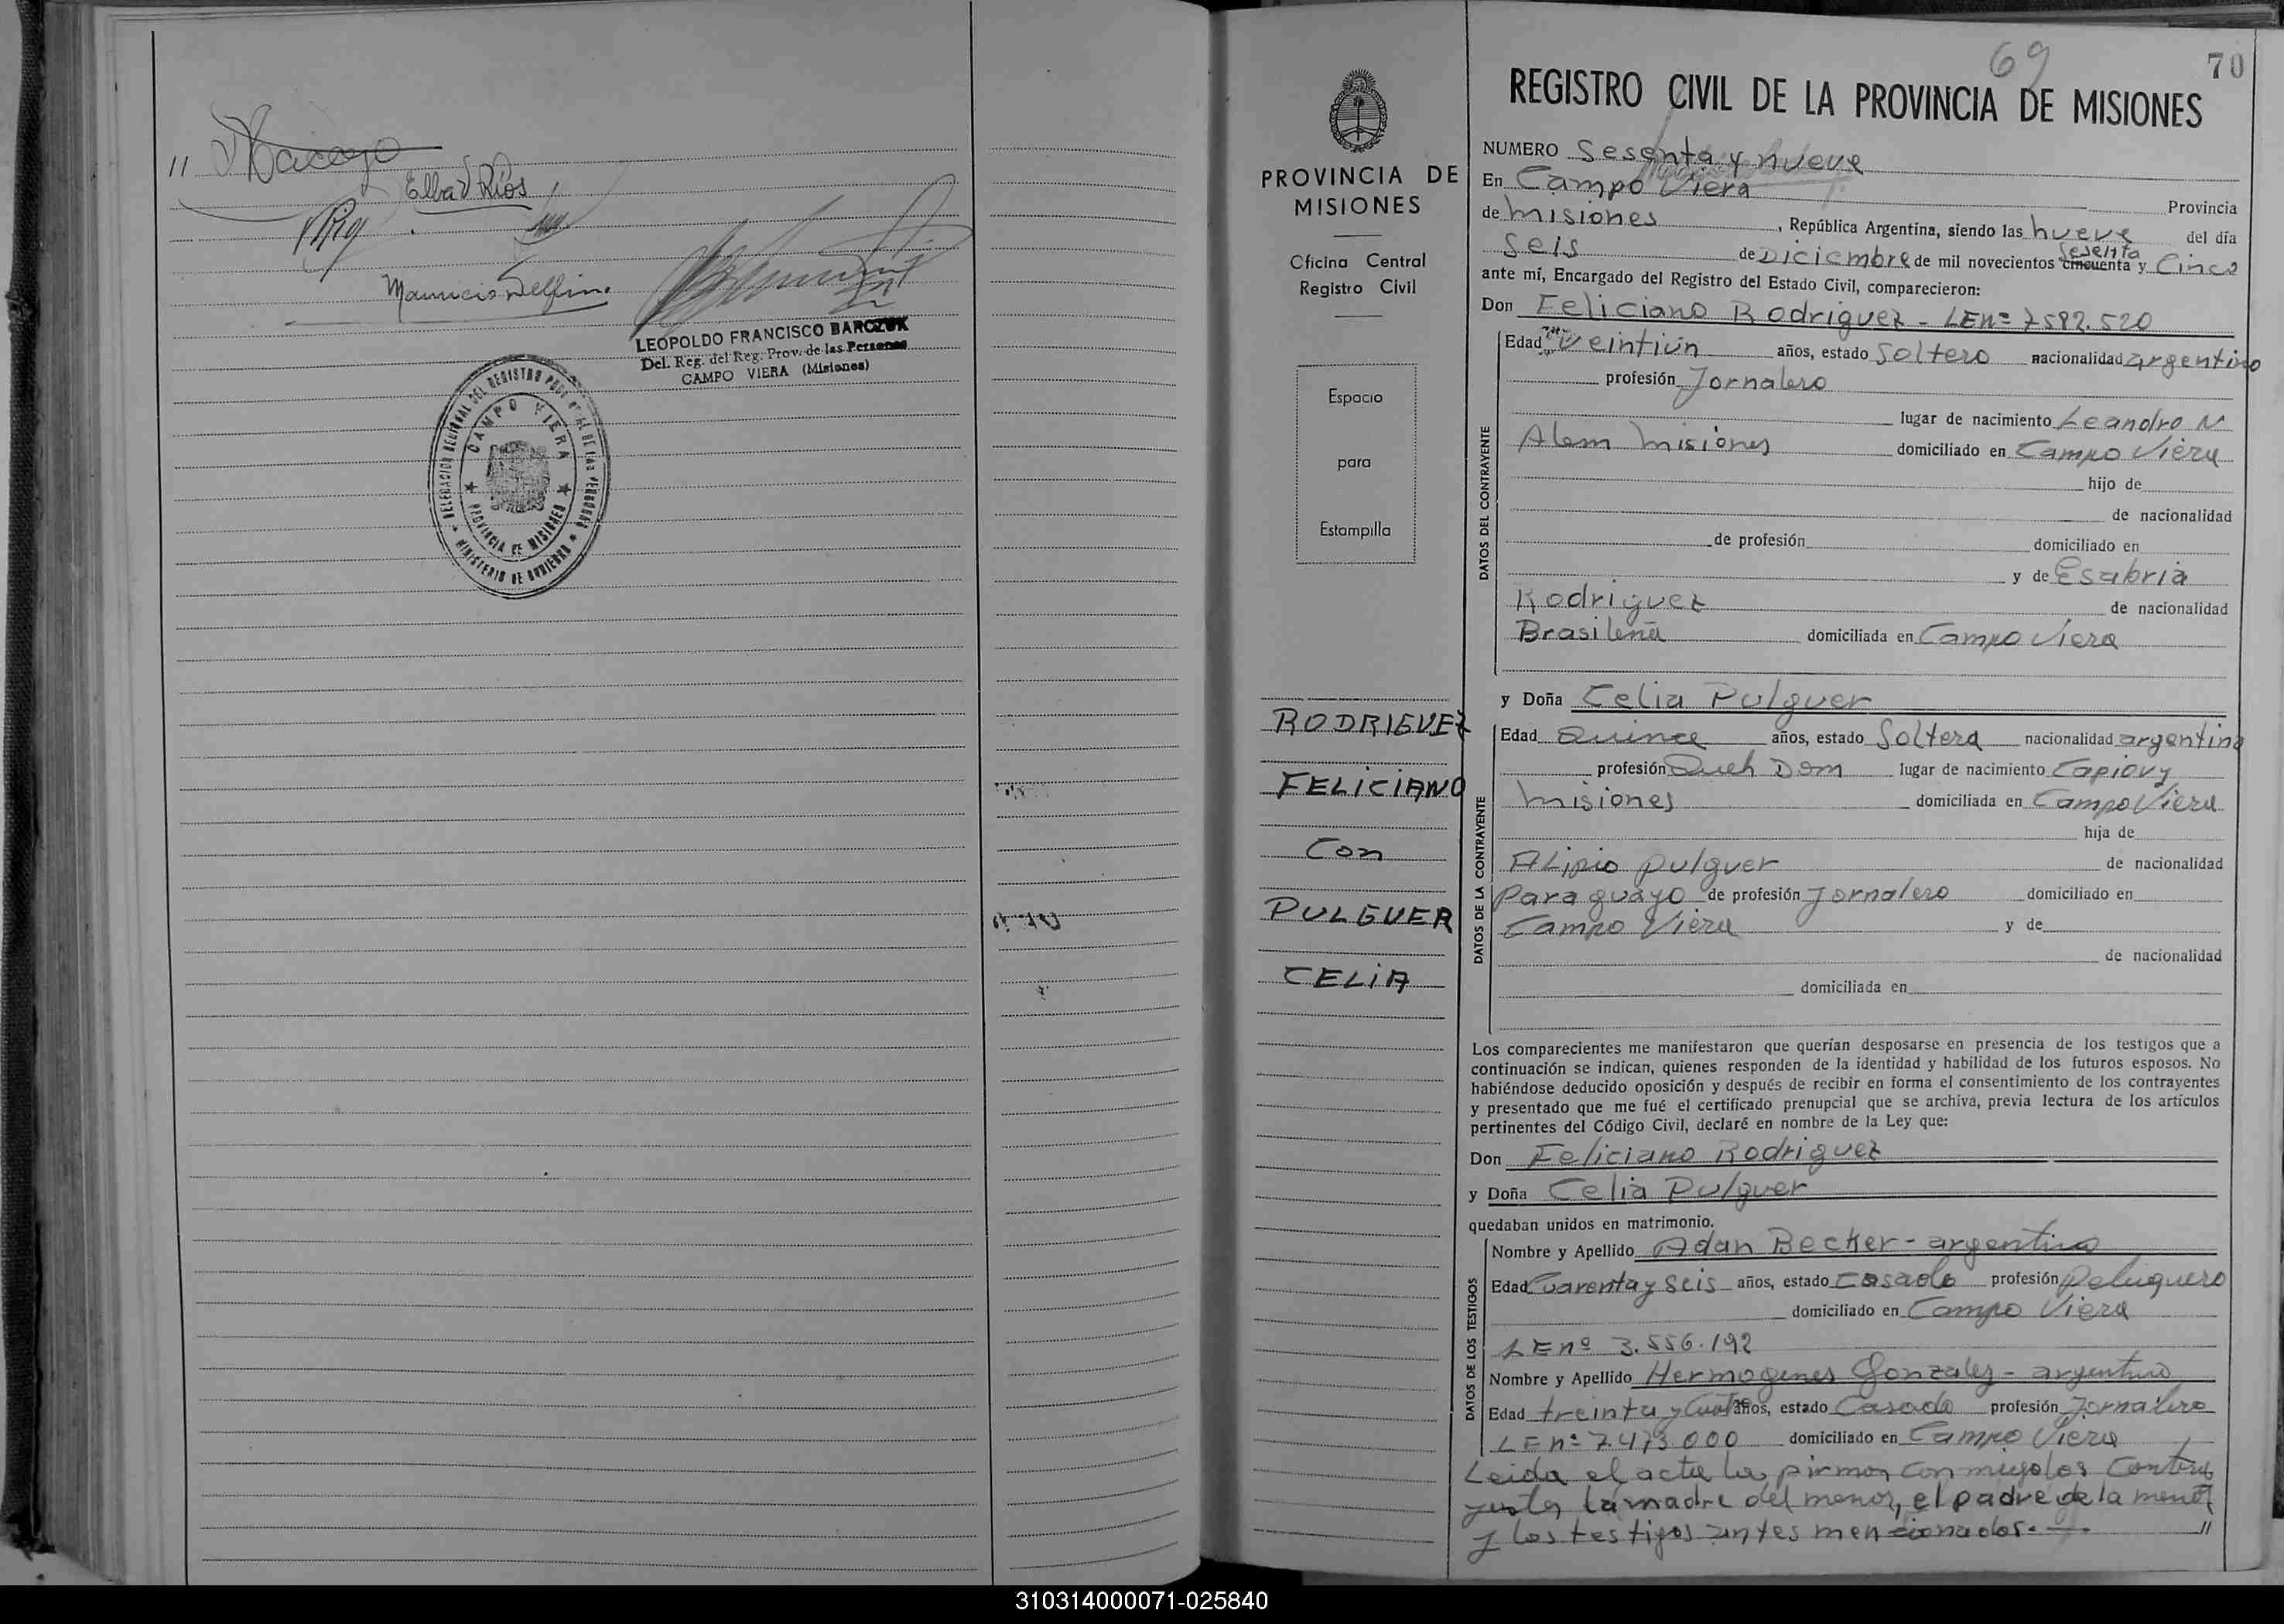 "
Elba V Ríos
Mauricio Delfin
LEOPOLDO FRANCISCO BARCZUK
Del. Reg. del Reg. Prov. de las Personas
CAMPO VIERA (Misiones)
DELEGACION REGIONAL DEL REGISTRO PROVINCIAL DE LAS PERSONAS
CAMPO VIERA
PROVINCIA DE MISIONES
MINISTERIO DE GOBIERNO
PROVINCIA DE
MISIONES
Oficina Central
Registro Civil
Espacio
para
Estampilla
RODRIGUEZ
FELICIANO
Con
PULGUER
CELIA
69
70
REGISTRO CIVIL DE LA PROVINCIA DE MISIONES
NUMERO Sesenta y nueve
En Campo Viera
Provincia
de Misiones, República Argentina, siendo las nueve del día
seis de Diciembre de mil novecientos cincuenta sesenta y Cinco
ante mí, Encargado del Registro del Estado Civil, comparecieron:
Don Feliciano Rodriguez - LEn= 7592.520
DATOS DEL CONTRAYENTE
Edad Veintiún años, estado Soltero nacionalidad argentino
profesión Jornalero
lugar de nacimiento Leandro N
Alem Misiones domiciliado en Campo Viera
hijo de
de nacionalidad
de profesión domiciliado en
y de Esabria
Rodriguez de nacionalidad
Brasileña domiciliada en Campo Viera
y Doña Celia Pulguer
DATOS DE LA CONTRAYENTE
Edad Quince años, estado Soltera nacionalidad argentina
profesión Queh Dom lugar de nacimiento Capiovy
Misiones domiciliada en Campo Viera
hija de
Alipio Pulguer de nacionalidad
Paraguayo de profesión Jornalero domiciliado en
Campo Viera y de
de nacionalidad
domiciliada en
Los comparecientes me manifestaron que querían desposarse en presencia de los testigos que a
continuación se indican, quienes responden de la identidad y habilidad de los futuros esposos. No
habiéndose deducido oposición y después de recibir en forma el consentimiento de los contrayentes
y presentado que me fué el certificado prenupcial que se archiva, previa lectura de los artículos
pertinentes del Código Civil, declaré en nombre de la Ley que:
Don Feliciano Rodriguez
y Doña Celia Pulguer
quedaban unidos en matrimonio.
DATOS DE LOS TESTIGOS
Nombre y Apellido Adan Becker - argentino
Edad Cuarenta y seis años, estado Casado profesión Peluquero
domiciliado en Campo Viera
LEnº 3.556.192
Nombre y Apellido Hermogenes Gonzalez - argentino
Edad treinta y Cuatro años, estado Casado profesión Jornalero
LEnº 7.473.000 domiciliado en Campo Viera
Leida el acta la firman conmigo los Contra
yentes la madre del menor, el padre de la menor
y los testigos antes mencionados.- "
310314000071-025840